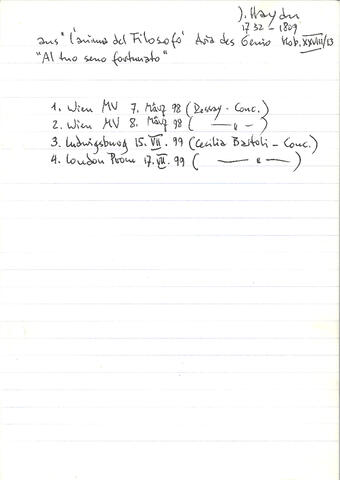 J. Haydn
1732 - 1809
aus "L'anima del Filosofo" Aria des Genio Hob. XXVIII/13
"Al tuo seno fortunato"
1. Wien MV 7. März 98 (Dessay - Conc.)
2. Wien MV 8. März 98 ( — " — )
3. Ludwigsburg 15. VII. 99 (Cecilia Bartoli - Conc.)
4. London Prom 17. VII. 99 ( — " — )